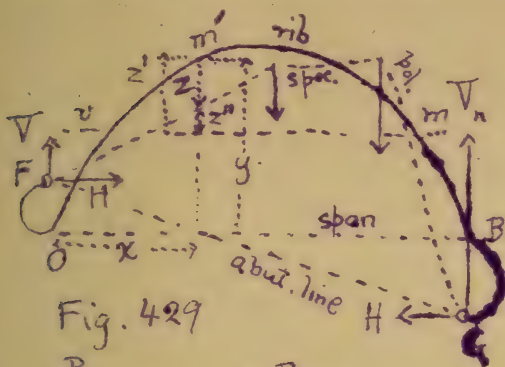 m' rib
z' z spec.
v z" m
V Vn
F H y
span B
O x
abut. line
Fig. 429 H